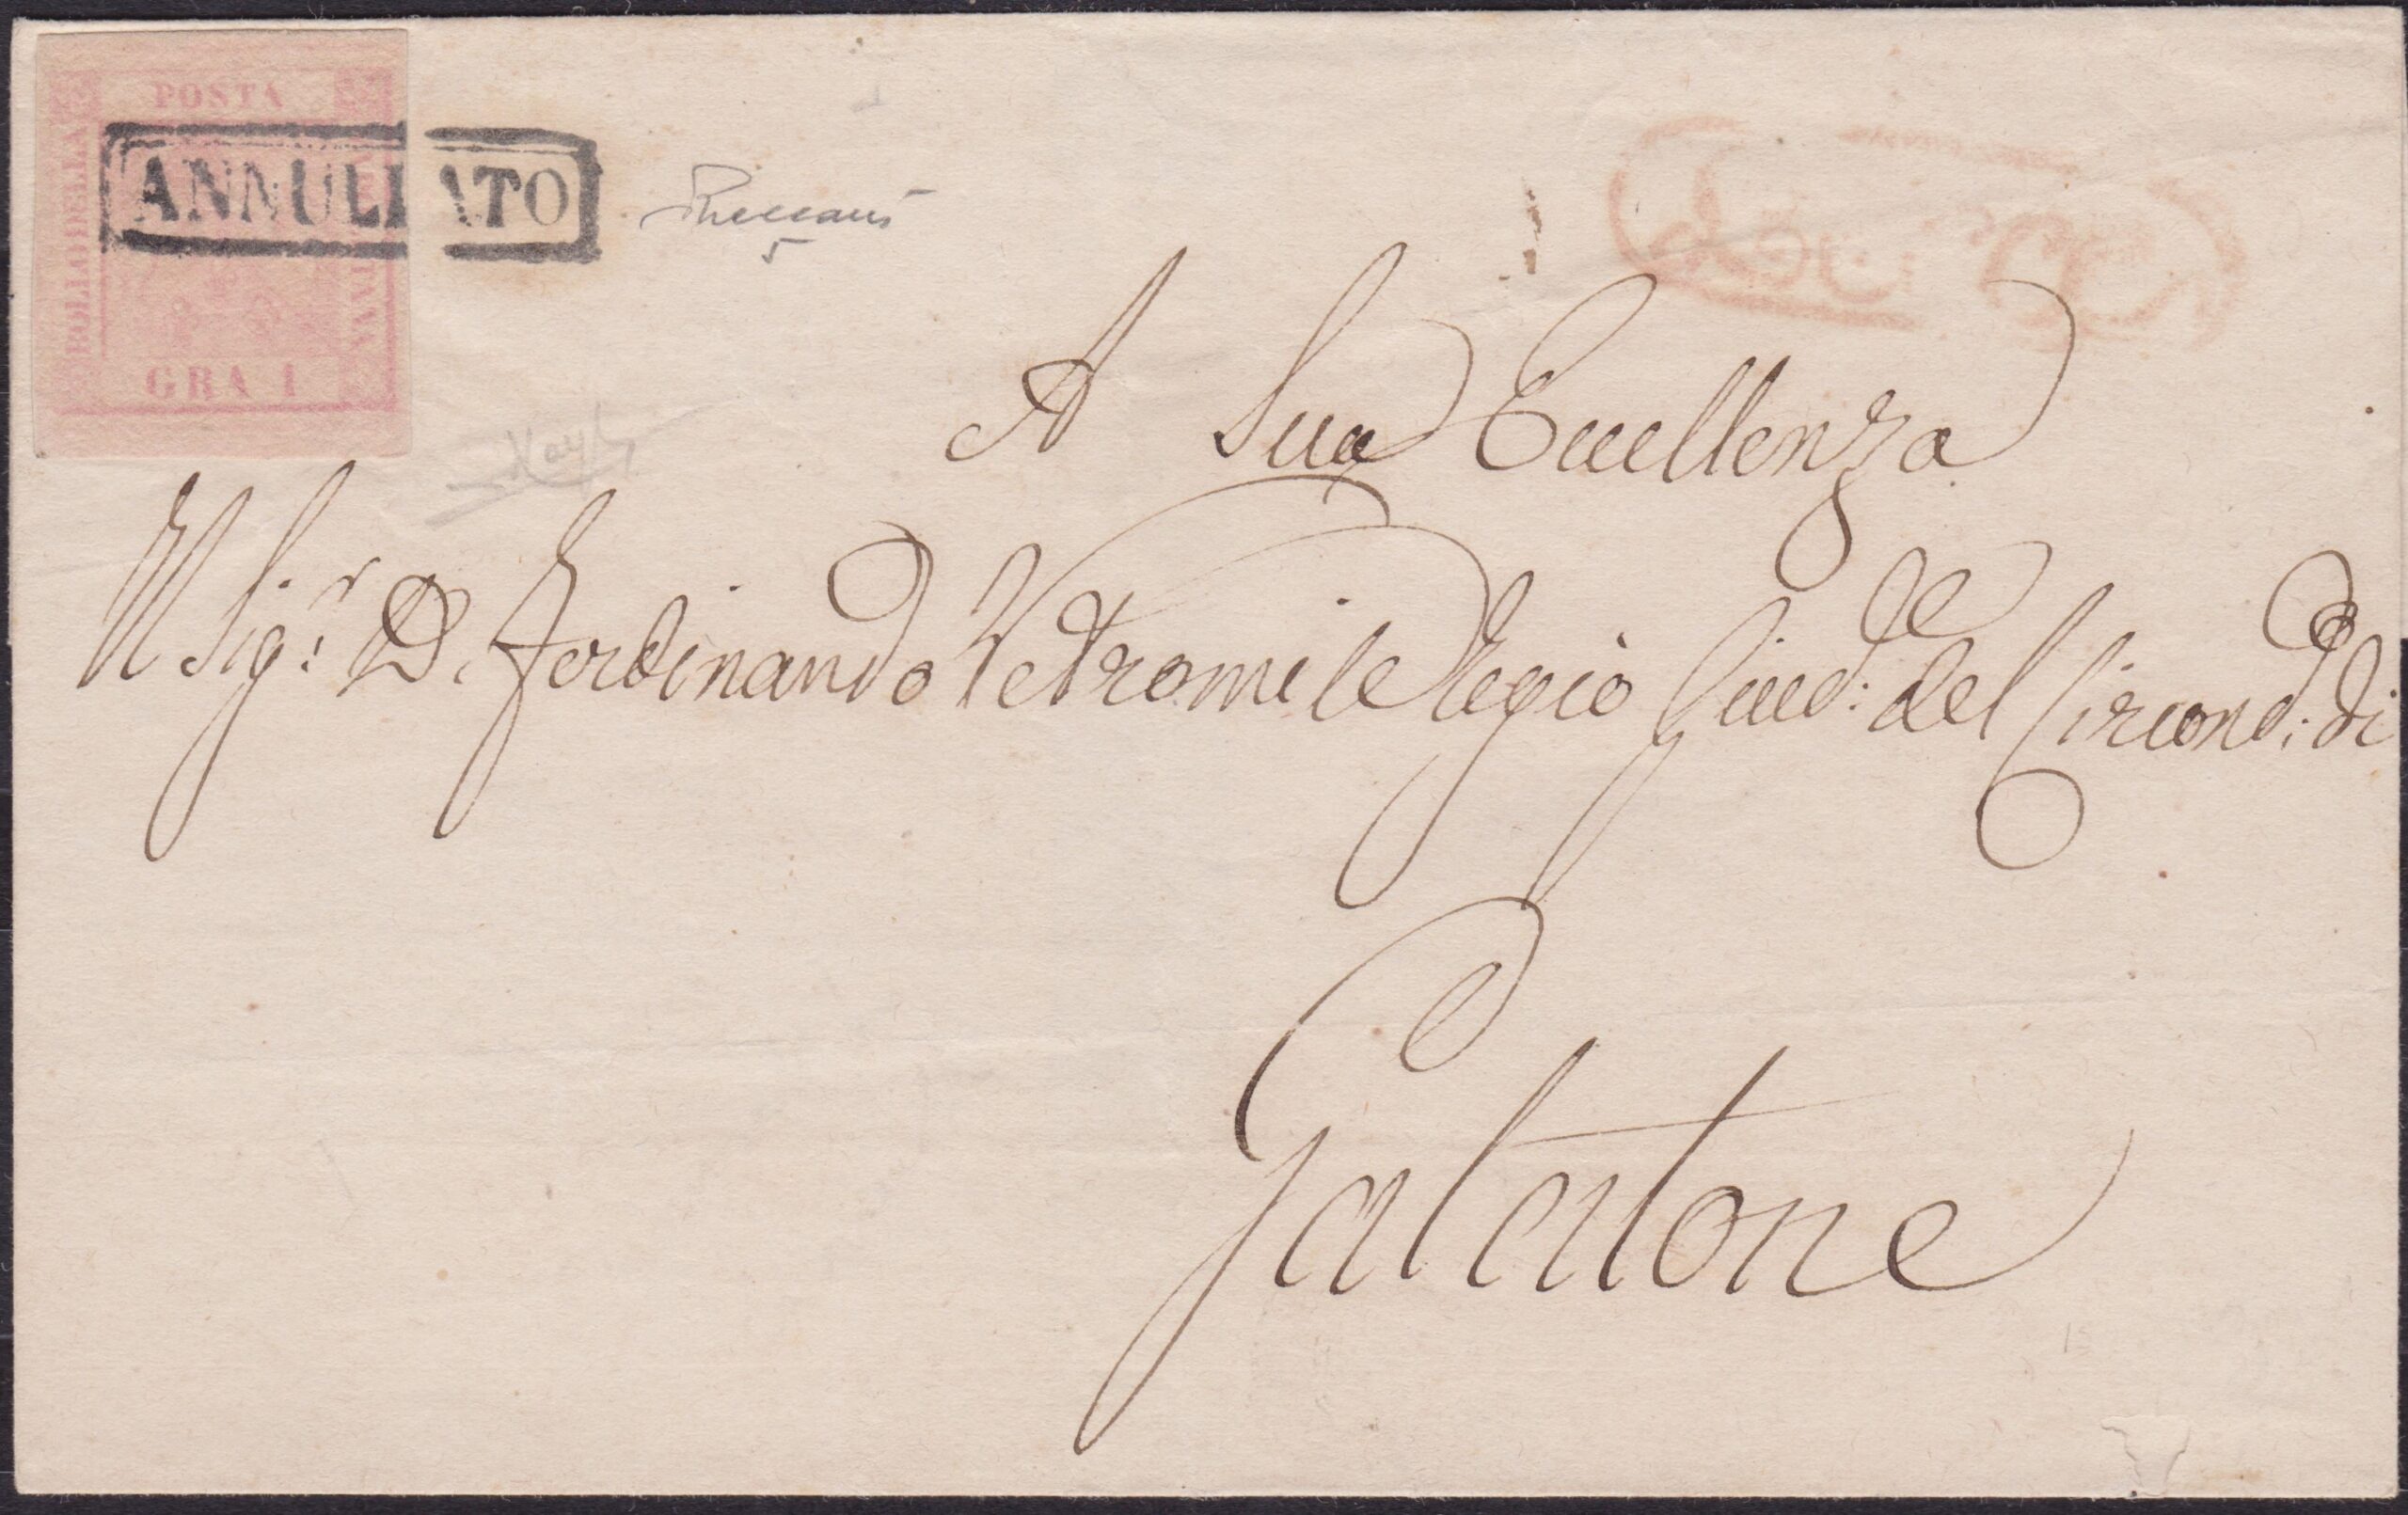 POSTA
BOLLO DELLA
NAPOLETANA
GRA 1
ANNULLATO
A Sua Eccellenza
Il Sig.r D. Ferdinando Vetromile Regio Giud:ce del Circond:o di
Galatone
15